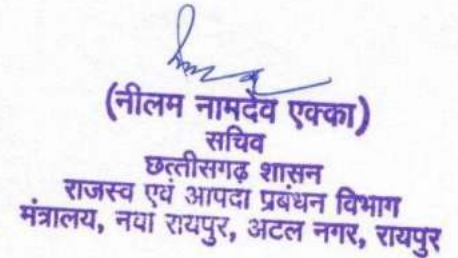 (नीलम नामदेव एक्का)
सचिव
छत्तीसगढ़ शासन
राजस्व एवं आपदा प्रबंधन विभाग
मंत्रालय, नवा रायपुर, अटल नगर, रायपुर